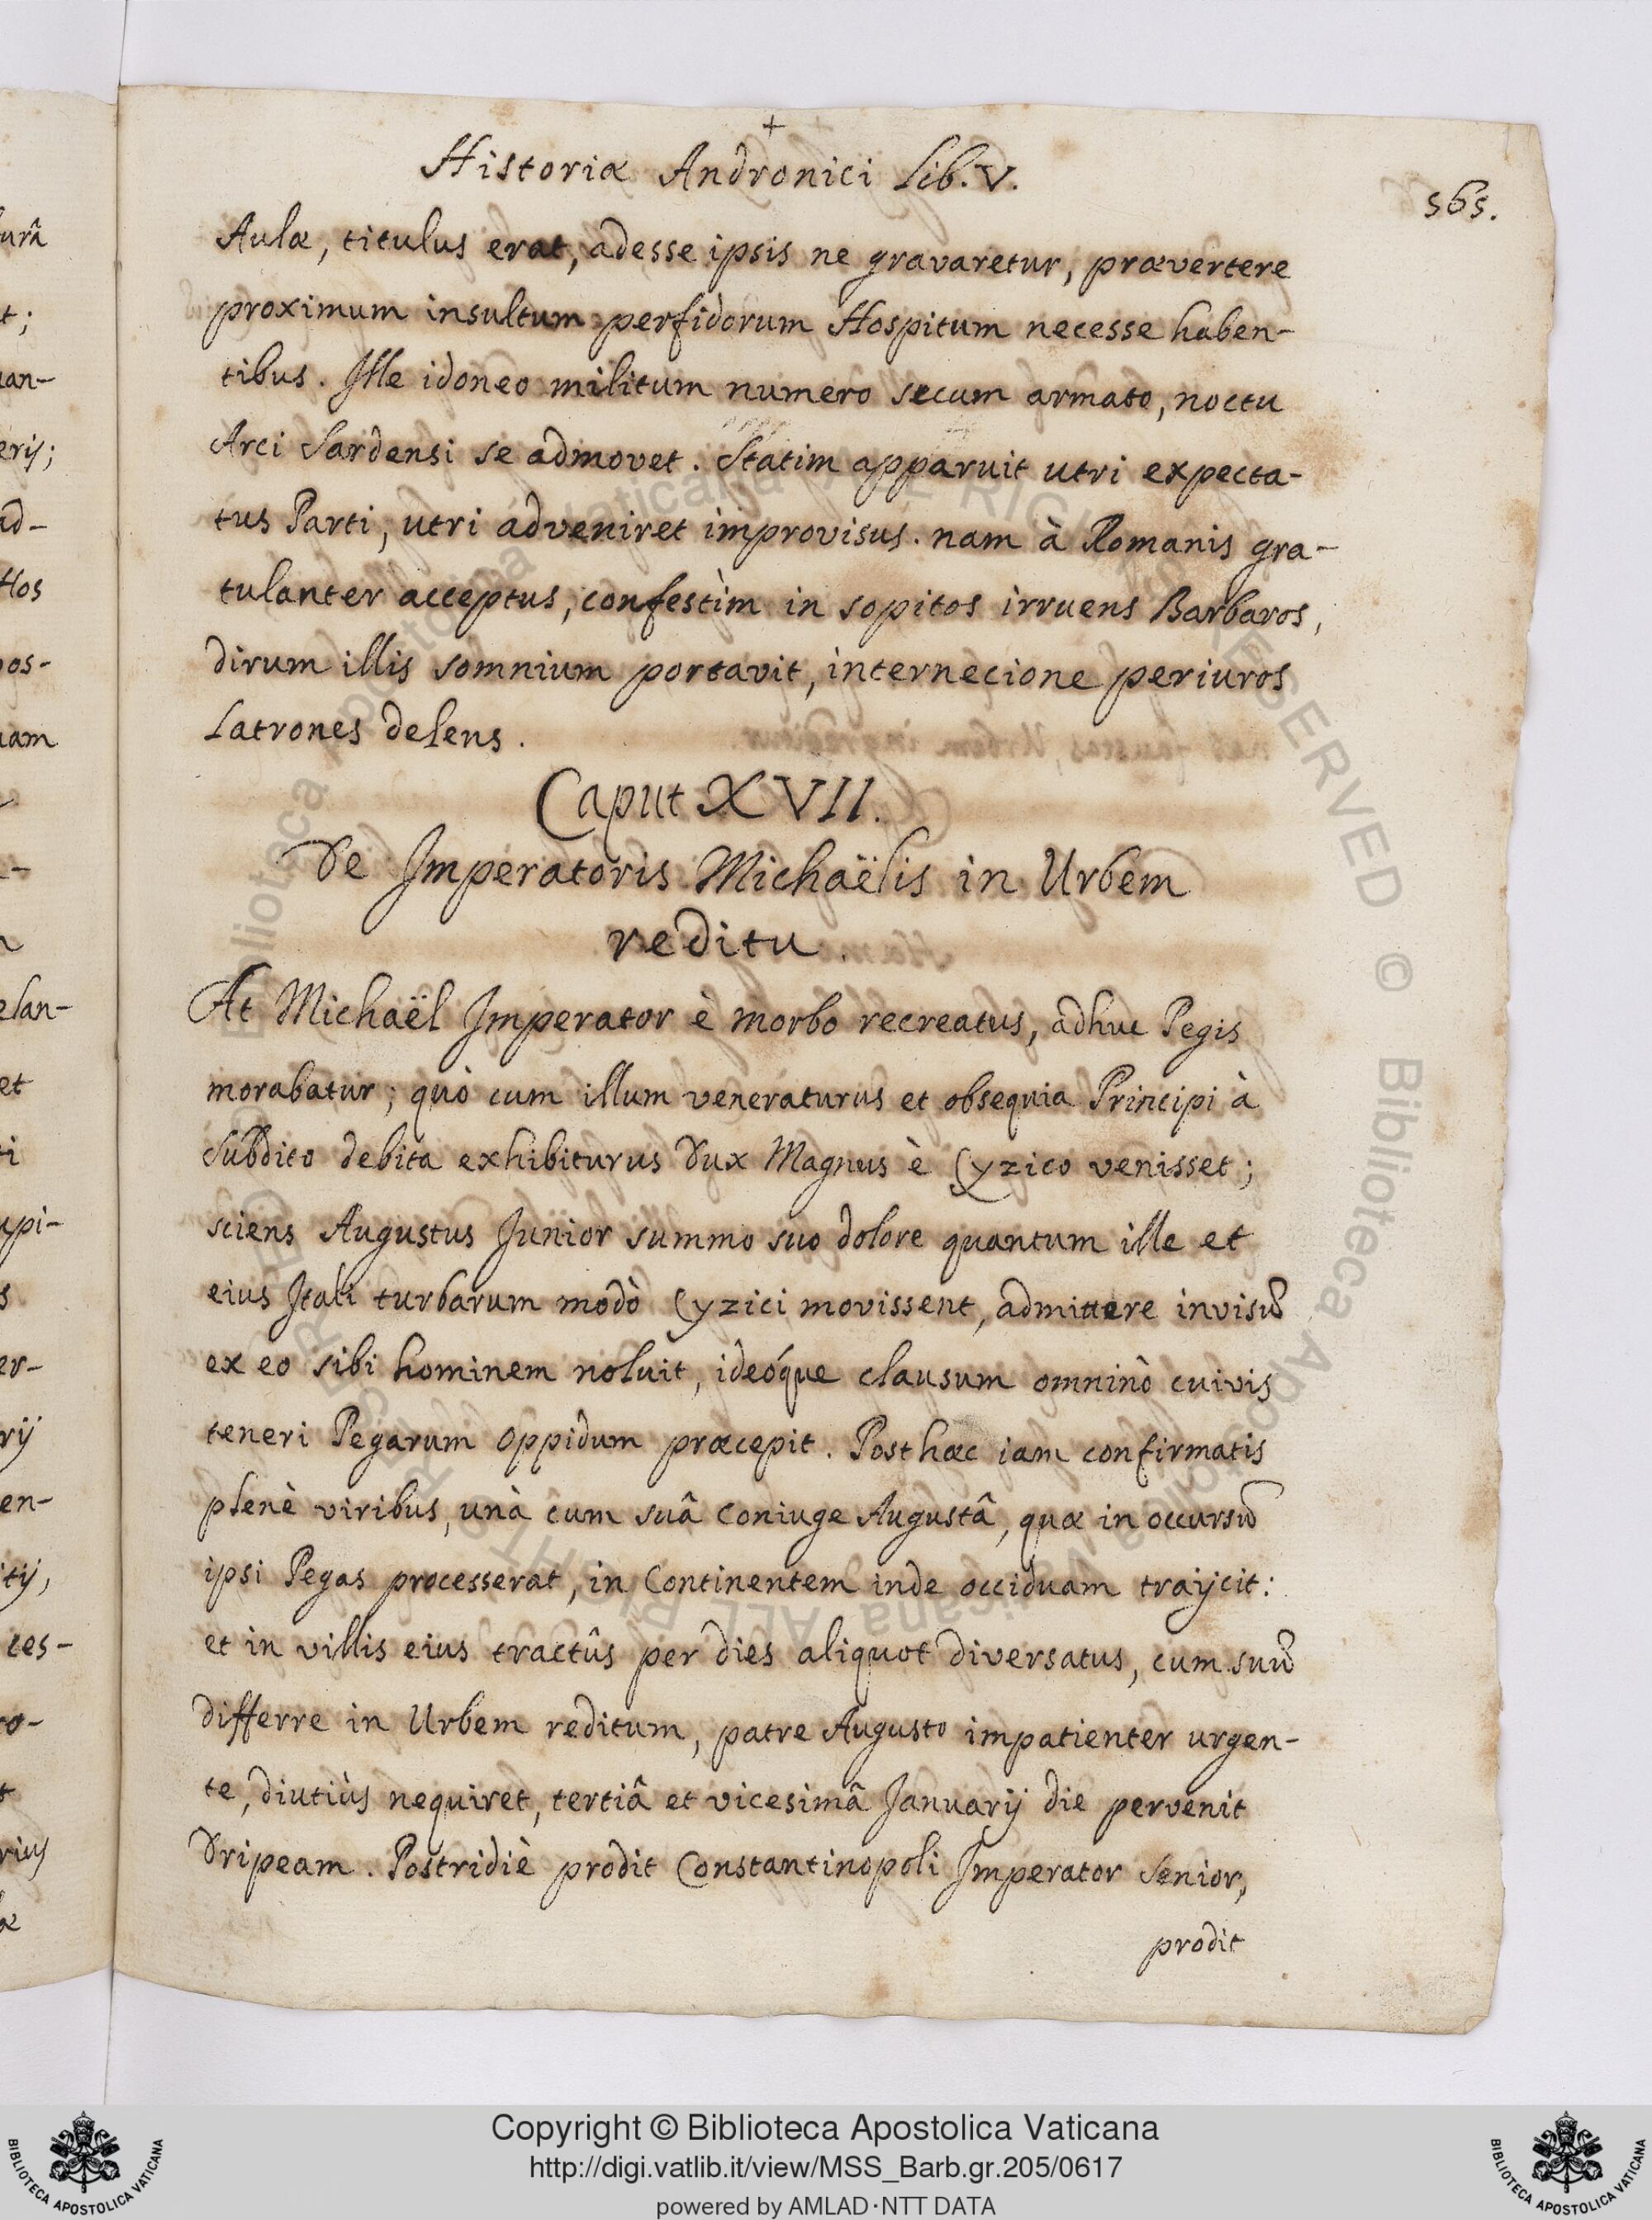 +
Historiæ Andronici Lib. V.
565.
Aulæ, titulus erat, adesse ipsis ne gravaretur, prævertere
proximum insultum perfidorum Hospitum necesse haben-
tibus. Ille idoneo militum numero secum armato, noctu
Arci Sardensi se admovet. Statim apparuit utri expecta-
tus Parti, utri adveniret improvisus. nam à Romanis gra-
tulanter acceptus, confestìm in sopitos irruens Barbaros,
dirum illis somnium portavit, internecione periuros
Latrones delens.
Caput XVII.
De Imperatoris Michaëlis in Urbem
reditu.
At Michaël Imperator è morbo recreatus, adhuc Pegis
morabatur; quò cum illum veneraturus et obsequia Principi à
Subdito debita exhibiturus Dux Magnus è Cyzico venisset;
sciens Augustus Junior summo suo dolore quantum ille et
eius Itali turbarum modò Cyzici movissent, admittere invisũ
ex eo sibi hominem noluit, ideóque clausum omninò cuivis
teneri Pegarum oppidum præcepit. Post hæc iam confirmatis
plenè viribus, unà cum suâ Coniuge Augustâ, quæ in occursũ
ipsi Pegas processerat, in Continentem inde occiduam traijcit:
et in villis eius tractûs per dies aliquot diversatus, cum suũ
differre in Urbem reditum, patre Augusto impatienter urgen-
te, diutiùs nequiret, tertiâ et vicesimâ Januarij die pervenit
Dripeam. Postridiè prodit Constantinopoli Imperator Senior,
prodit
urâ
t;
erij;
ad-
Hos
pos-
uam
elan-
et
upi-
er-
rij
en-
itij,
ces-
ro-
rius
æ
Copyright © Biblioteca Apostolica Vaticana
http://digi.vatlib.it/view/MSS_Barb.gr.205/0617
powered by AMLAD·NTT DATA
BIBLIOTECA APOSTOLICA VATICANA
BIBLIOTECA APOSTOLICA VATICANA